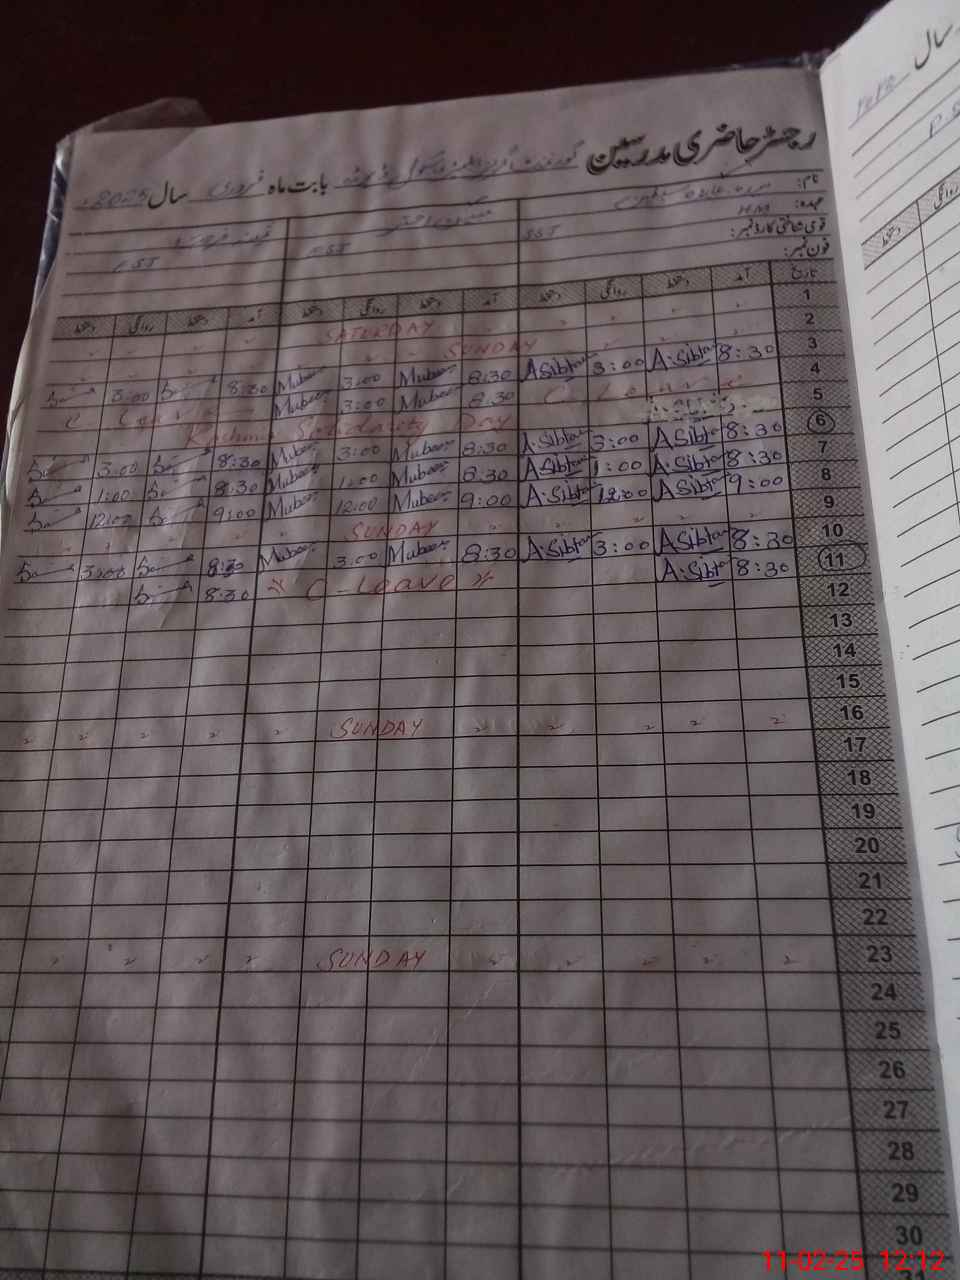 رجسٹر حاضری مدرسین گورنمنٹ گرلز ایلیمنٹری سکول بابت ماہ فروری سال 2025ء
نام:
عہدہ: HM
SST EST EST
قومی شناختی کارڈ نمبر:
فون نمبر:
تاریخ آمد دستخط روانگی دستخط آمد دستخط روانگی دستخط آمد دستخط روانگی دستخط
1 SATURDAY
2 SUNDAY
3 8:30 A.Sibtain 3:00 A.Sibtain 8:30 Mubeen 3:00 Mubeen 8:30 3:00
4 C. Leave 8:30 Mubeen 3:00 Mubeen C Leave
5 Kashmir Solidarity Day
6 8:30 A.Sibtain 3:00 A.Sibtain 8:30 Mubeen 3:00 Mubeen 8:30 3:00
7 8:30 A.Sibtain 1:00 A.Sibtain 8:30 Mubeen 1:00 Mubeen 8:30 1:00
8 9:00 A.Sibtain 12:00 A.Sibtain 9:00 Mubeen 12:00 Mubeen 9:00 12:00
9 SUNDAY
10 8:30 A.Sibtain 3:00 A.Sibtain 8:30 Mubeen 3:00 Mubeen 8:30 3:00
11 8:30 A.Sibtain C-Leave 8:30
12
13
14
15
16 SUNDAY
17
18
19
20
21
22
23 SUNDAY
24
25
26
27
28
29
30
سال
دستخط روانگی
11-02-25 12:12